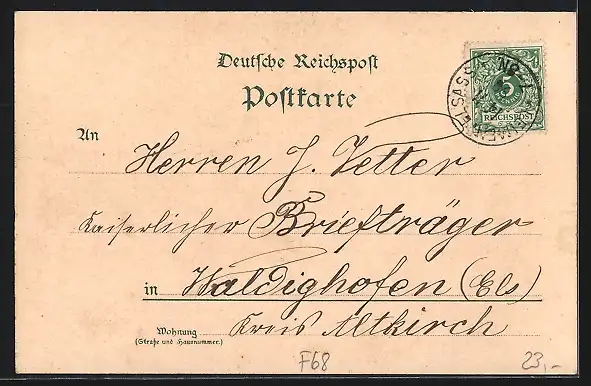 Deutsche Reichspost
Postkarte
5
REICHSPOST
An
Herren J. Vetter
Kaiserlicher Briefträger
in Waldighofen (Els)
Kreis Altkirch
Wohnung
(Straße und Hausnummer.)
F68
23,-